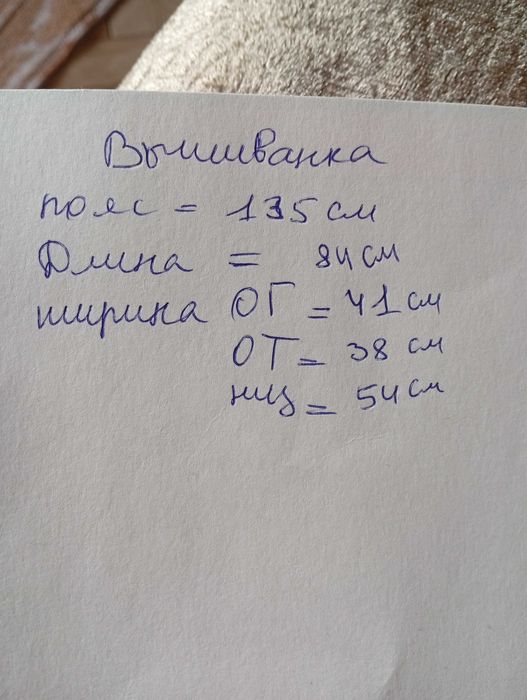 Вышиванка
пояс = 135 см
Длина = 84 см
ширина ОГ = 41 см
ОТ = 38 см
низ = 54 см